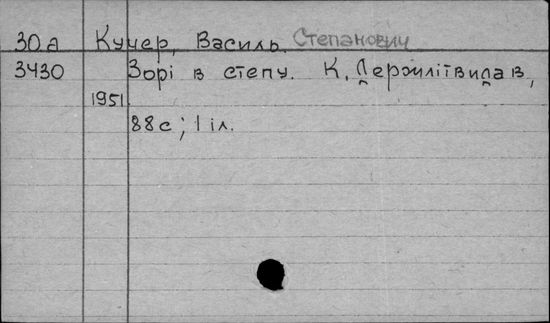 30а Кучер, Василь Степанович
3430 Зорі в степу. К, Держлітвидав,
1951.
88с; 1 іл.